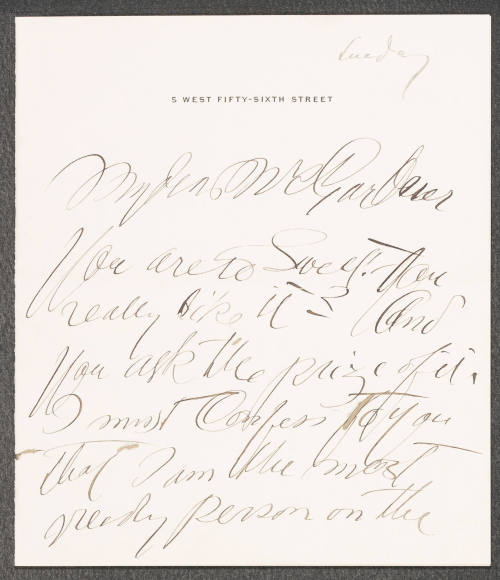 Tuesday
5 WEST FIFTY-SIXTH STREET
My dear Mrs Gardner
You are to Sweet! You
really like it? And
You ask the prize of it.
I must Confess to you
that I am the most
greedy person on the